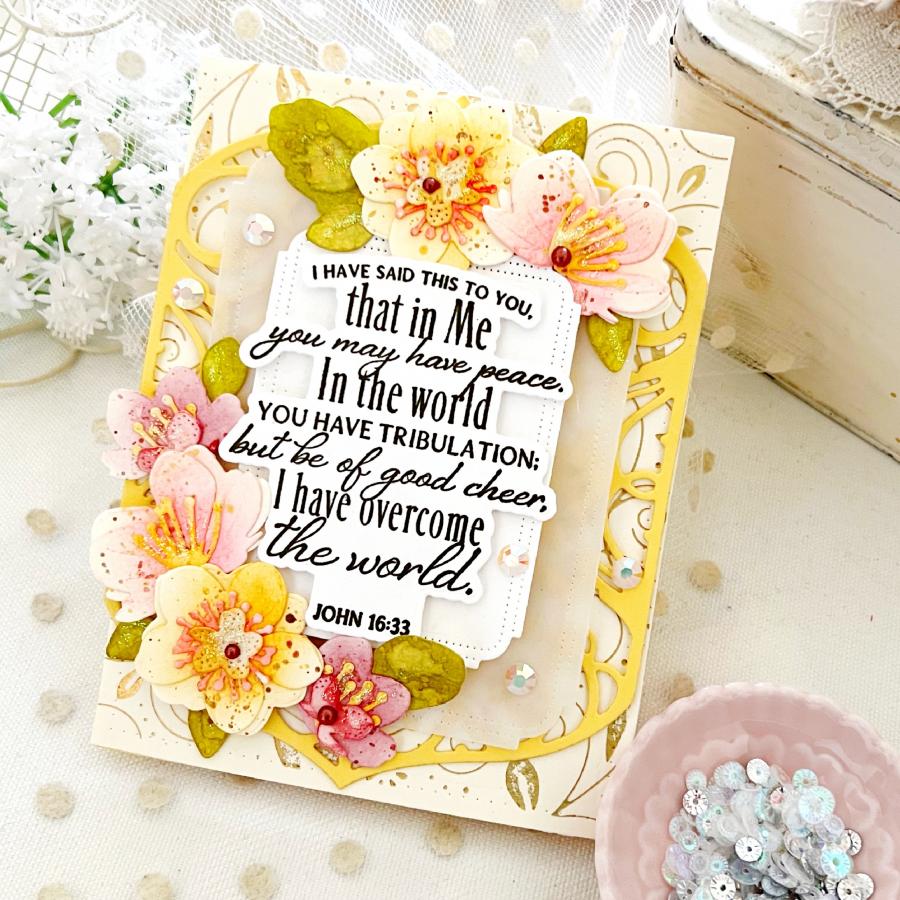 I HAVE SAID THIS TO YOU,
that in Me
you may have peace.
In the world
YOU HAVE TRIBULATION;
but be of good cheer,
I have overcome
the world.
JOHN 16:33